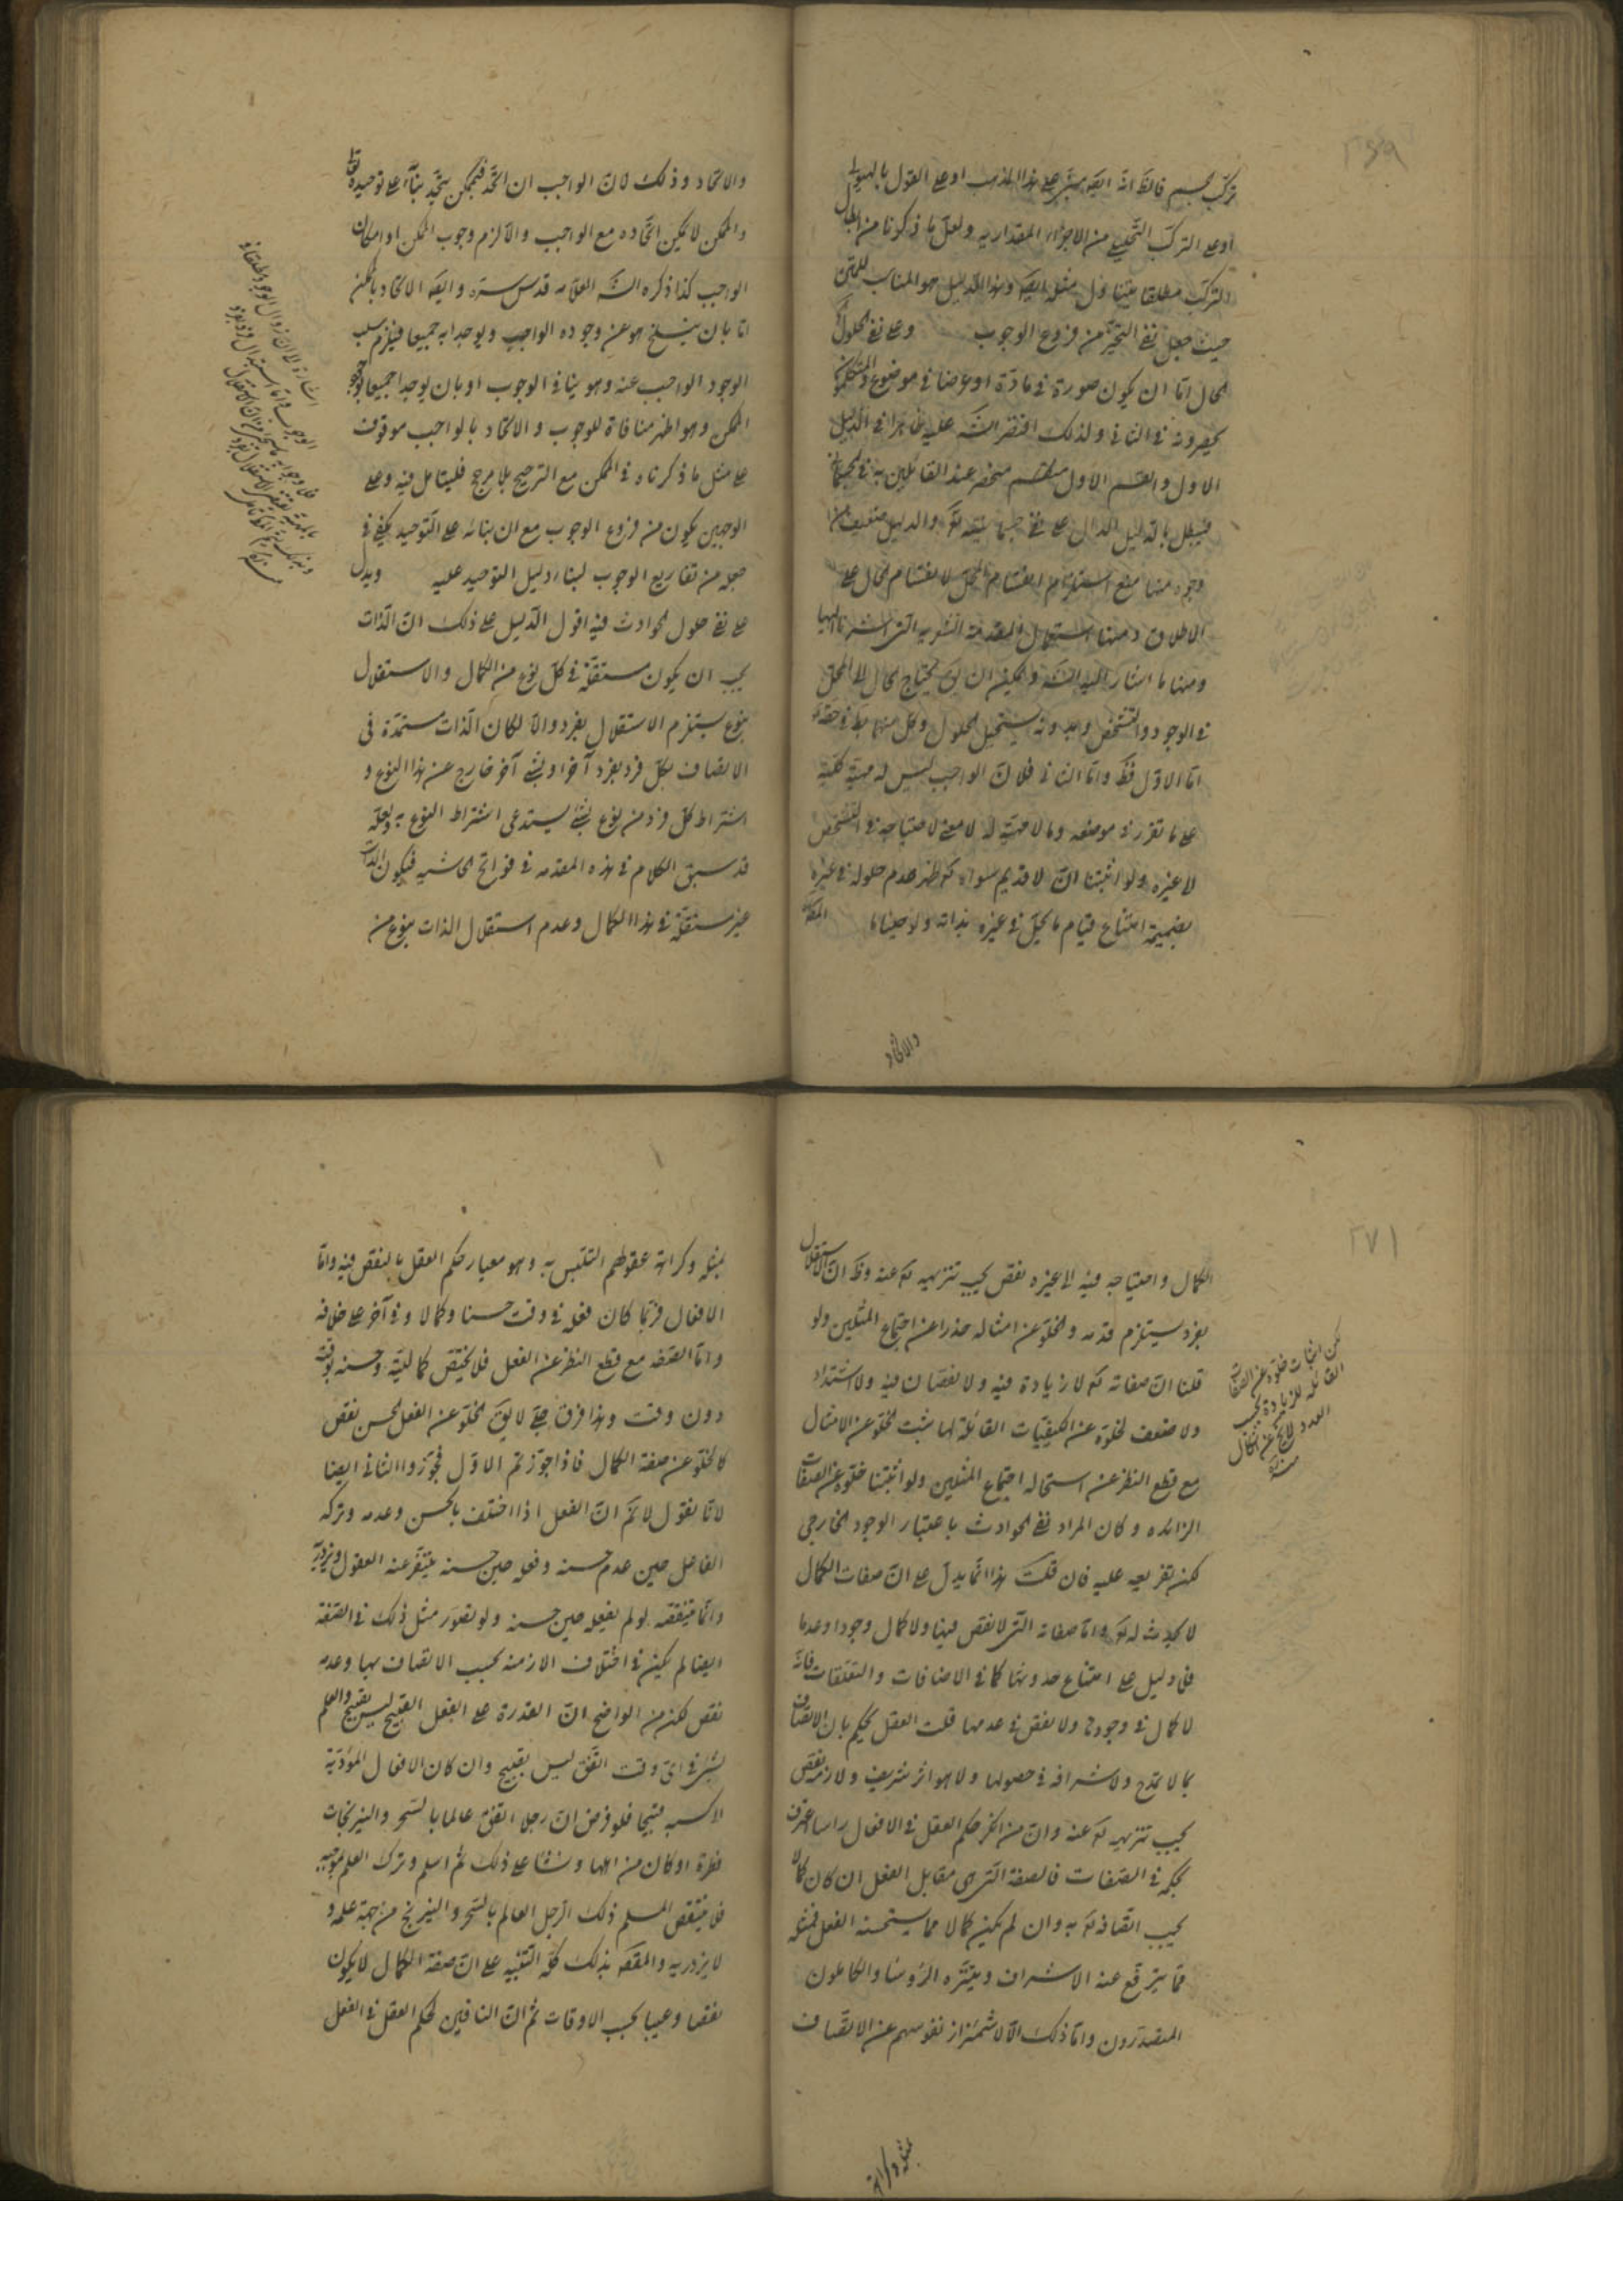 ٢٦٩
تركب الجسم فالظ انه ايضا مبنى على هذا المذهب او على القول بالهيولى
او على التركب التحليلى من الاجزاء المقداريه ولعل ما ذكرنا من ابطال
التركب مطلقا يتناول مثله ايضا وهذا الدليل هو المناسب للمتن
حيث جعل نفى التحيز من فروع الوجوب وعلى نفى الحلول
الحال اما ان يكون صورة فى مادة او عرضا فى موضوع والمتكلمون
يحصرونه فى الثانى ولذلك اقتصر الش عليه ظاهرا فى الدليل
الاول والقسم الاول منحصر عند القائلين به فى الجسمانى
فيبطل بالدليل الدال على نفى جسمانيته تع والدليل ضعيف من
وجوه منها منع استلزام انقسام المحل لانقسام الحال على
الاطلاق ومنها استعمال المقدمة التى اشرنا اليها
ومنها ما اشار اليه الش ويمكن ان يق يحتاج الحال الى المحل
فى الوجود والتشخص وبدونه يستحيل الحلول وكل منهما بط فى حقه تع
اما الاول فظ واما الثانى فلان الواجب ليس له مهية كلية
على ما تقرر فى موضعه وما لا مهية له لا معنى لاحتياجه فى التشخص
لا غيره ولو اثبتنا ان لا قديم سواه تع ظهر عدم حلوله فى غيره
بضميمة امتناع قيام ما يحل فى غيره بذاته
والاتحاد
والاتحاد وذلك لان الواجب ان اتحد فبممكن يتحد بناء على توحيده تعا
والممكن لا يمكن اتحاده مع الواجب والا لزم وجوب الممكن او امكان
الواجب كذا ذكره الش العلامه قدس سره وايضا الاتحاد بالممكن
اما بان ينسلخ هو عن وجوده الواجب ويوجدا به جميعا فيلزم سلب
الوجود الواجب عنه وهو ينافى الوجوب او بان يوجدا جميعا بوجود
الممكن وهو اظهر منافاة للوجوب والاتحاد بالواجب موقوف
على مثل ما ذكرناه فى الممكن مع الترجيح بلا مرجح فليتامل فيه وعلى
الوجهين يكون من فروع الوجوب مع ان بنائه على التوحيد يكفى فى
جعله من تفاريع الوجوب لبناء دليل التوحيد عليه ويدل
على نفى حلول الحوادث فيه اقول الدليل على ذلك ان الذات
يجب ان يكون مستقلة فى كل نوع من الكمال والاستقلال
بنوع يستلزم الاستقلال بفرد والا لكان الذات مستمدة فى
الاتصاف بكل فرد بفرد آخر او بشئ آخر خارج عن هذا النوع و
اشتراط كل فرد من نوع بشئ يستدعى اشتراط النوع به ولعله
قد سبق الكلام فى هذه المقدمه فى فواتح الحاشيه فيكون الذات
غير مستقلة فى هذا الكمال وعدم استقلال الذات بنوع من
٢٧١
الكمال واحتياجه فيه الى غيره نقص يجب تنزيهه تع عنه وظ ان الاستقلال
بفرد يستلزم قدمه والخلو عن امثاله حذرا عن اجتماع المثلين ولو
قلنا ان صفاته تع لا زيادة فيه ولا نقصان فيه ولا اشتداد
ولا ضعف لخلوه عن الكيفيات القائلة لها يثبت الخلو عن الامثال
مع قطع النظر عن استحاله اجتماع المثلين ولو اثبتنا خلوه عن الصفات
الزائده وكان المراد نفى الحوادث باعتبار الوجود الخارجى
يمكن تفريعه عليه فان قلت هذا انما يدل على ان صفات الكمال
لا يحدث له تع واما صفاته التى لا نقص فيها ولا كمال وجودا وعدما
فلا دليل على امتناع حدوثها كما فى الاضافات والتعلقات فانه
لا كمال فى وجودها ولا نقص فى عدمها قلت العقل يحكم بان الاتصاف
بما لا تمدح ولا شرافه فى حصولها ولا هو اثر شريف ولا لازمه نقص
يجب تنزيهه تع عنه وان من انكر حكم العقل فى الافعال راسا اعترف
بحكمه فى الصفات فالصفة التى هى مقابل الفعل ان كان كمالا
يجب اتصافه تع به وان لم يكن كمالا مما يستحسنه العقل فمثله
مما يترفع عنه الاشراف ويتنزه الرؤسا والكاملون
المتصدرون وما ذلك الا لاشمئزاز نفوسهم عن الاتصاف
بمثله وكراهة
لكن اثبات خلوه عن الصفات
القائله للزيادة بحسب
العدد لا يخ عن اشكال
بمثله وكراهة عقولهم التلبس به وهو معيار حكم العقل بالنقص فيه واما
الافعال فربما كان فعله فى وقت حسنا وكمالا وفى آخر على خلافه
واما الصفه مع قطع النظر عن الفعل فلا يختص كماليته وحسنه بوقت
دون وقت وهذا فرق جلى لا يق الخلو عن الفعل الحسن نقص
كالخلو عن صفة الكمال فاذا جوزتم الاول فجوزوا الثانى ايضا
لانا نقول لا نم ان الفعل اذا اختلف بالحسن وعدمه وتركه
الفاعل حين عدم حسنه وفعله حين حسنه يتنفر عنه العقول ويزدريه
وانما ينقصه لو لم يفعله حين حسنه ولو تصور مثل ذلك فى الصفة
ايضا لم يكن فى اختلاف الازمنه بحسب الاتصاف بها وعدمه
نقص لكن من الواضح ان القدرة على الفعل القبيح ليس بقبيح والعلم
بشئ فى اى وقت اتفق ليس بقبيح وان كان الافعال المؤدية
لاكسبه قبيحا فلو فرض ان رجلا اتفق عالما بالسحر والنيرنجات
فطرة او كان من اهلها ونشا على ذلك ثم اسلم وترك العلم بموجبه
فلا ينتقص المسلم ذلك الرجل العالم بالسحر والنيرنج من جهة علمه و
لا يزدريه والمقص بذلك كله التنبيه على ان صفة الكمال لا يكون
نقصا وعيبا بحسب الاوقات ثم ان النافين لحكم العقل فى الفعل